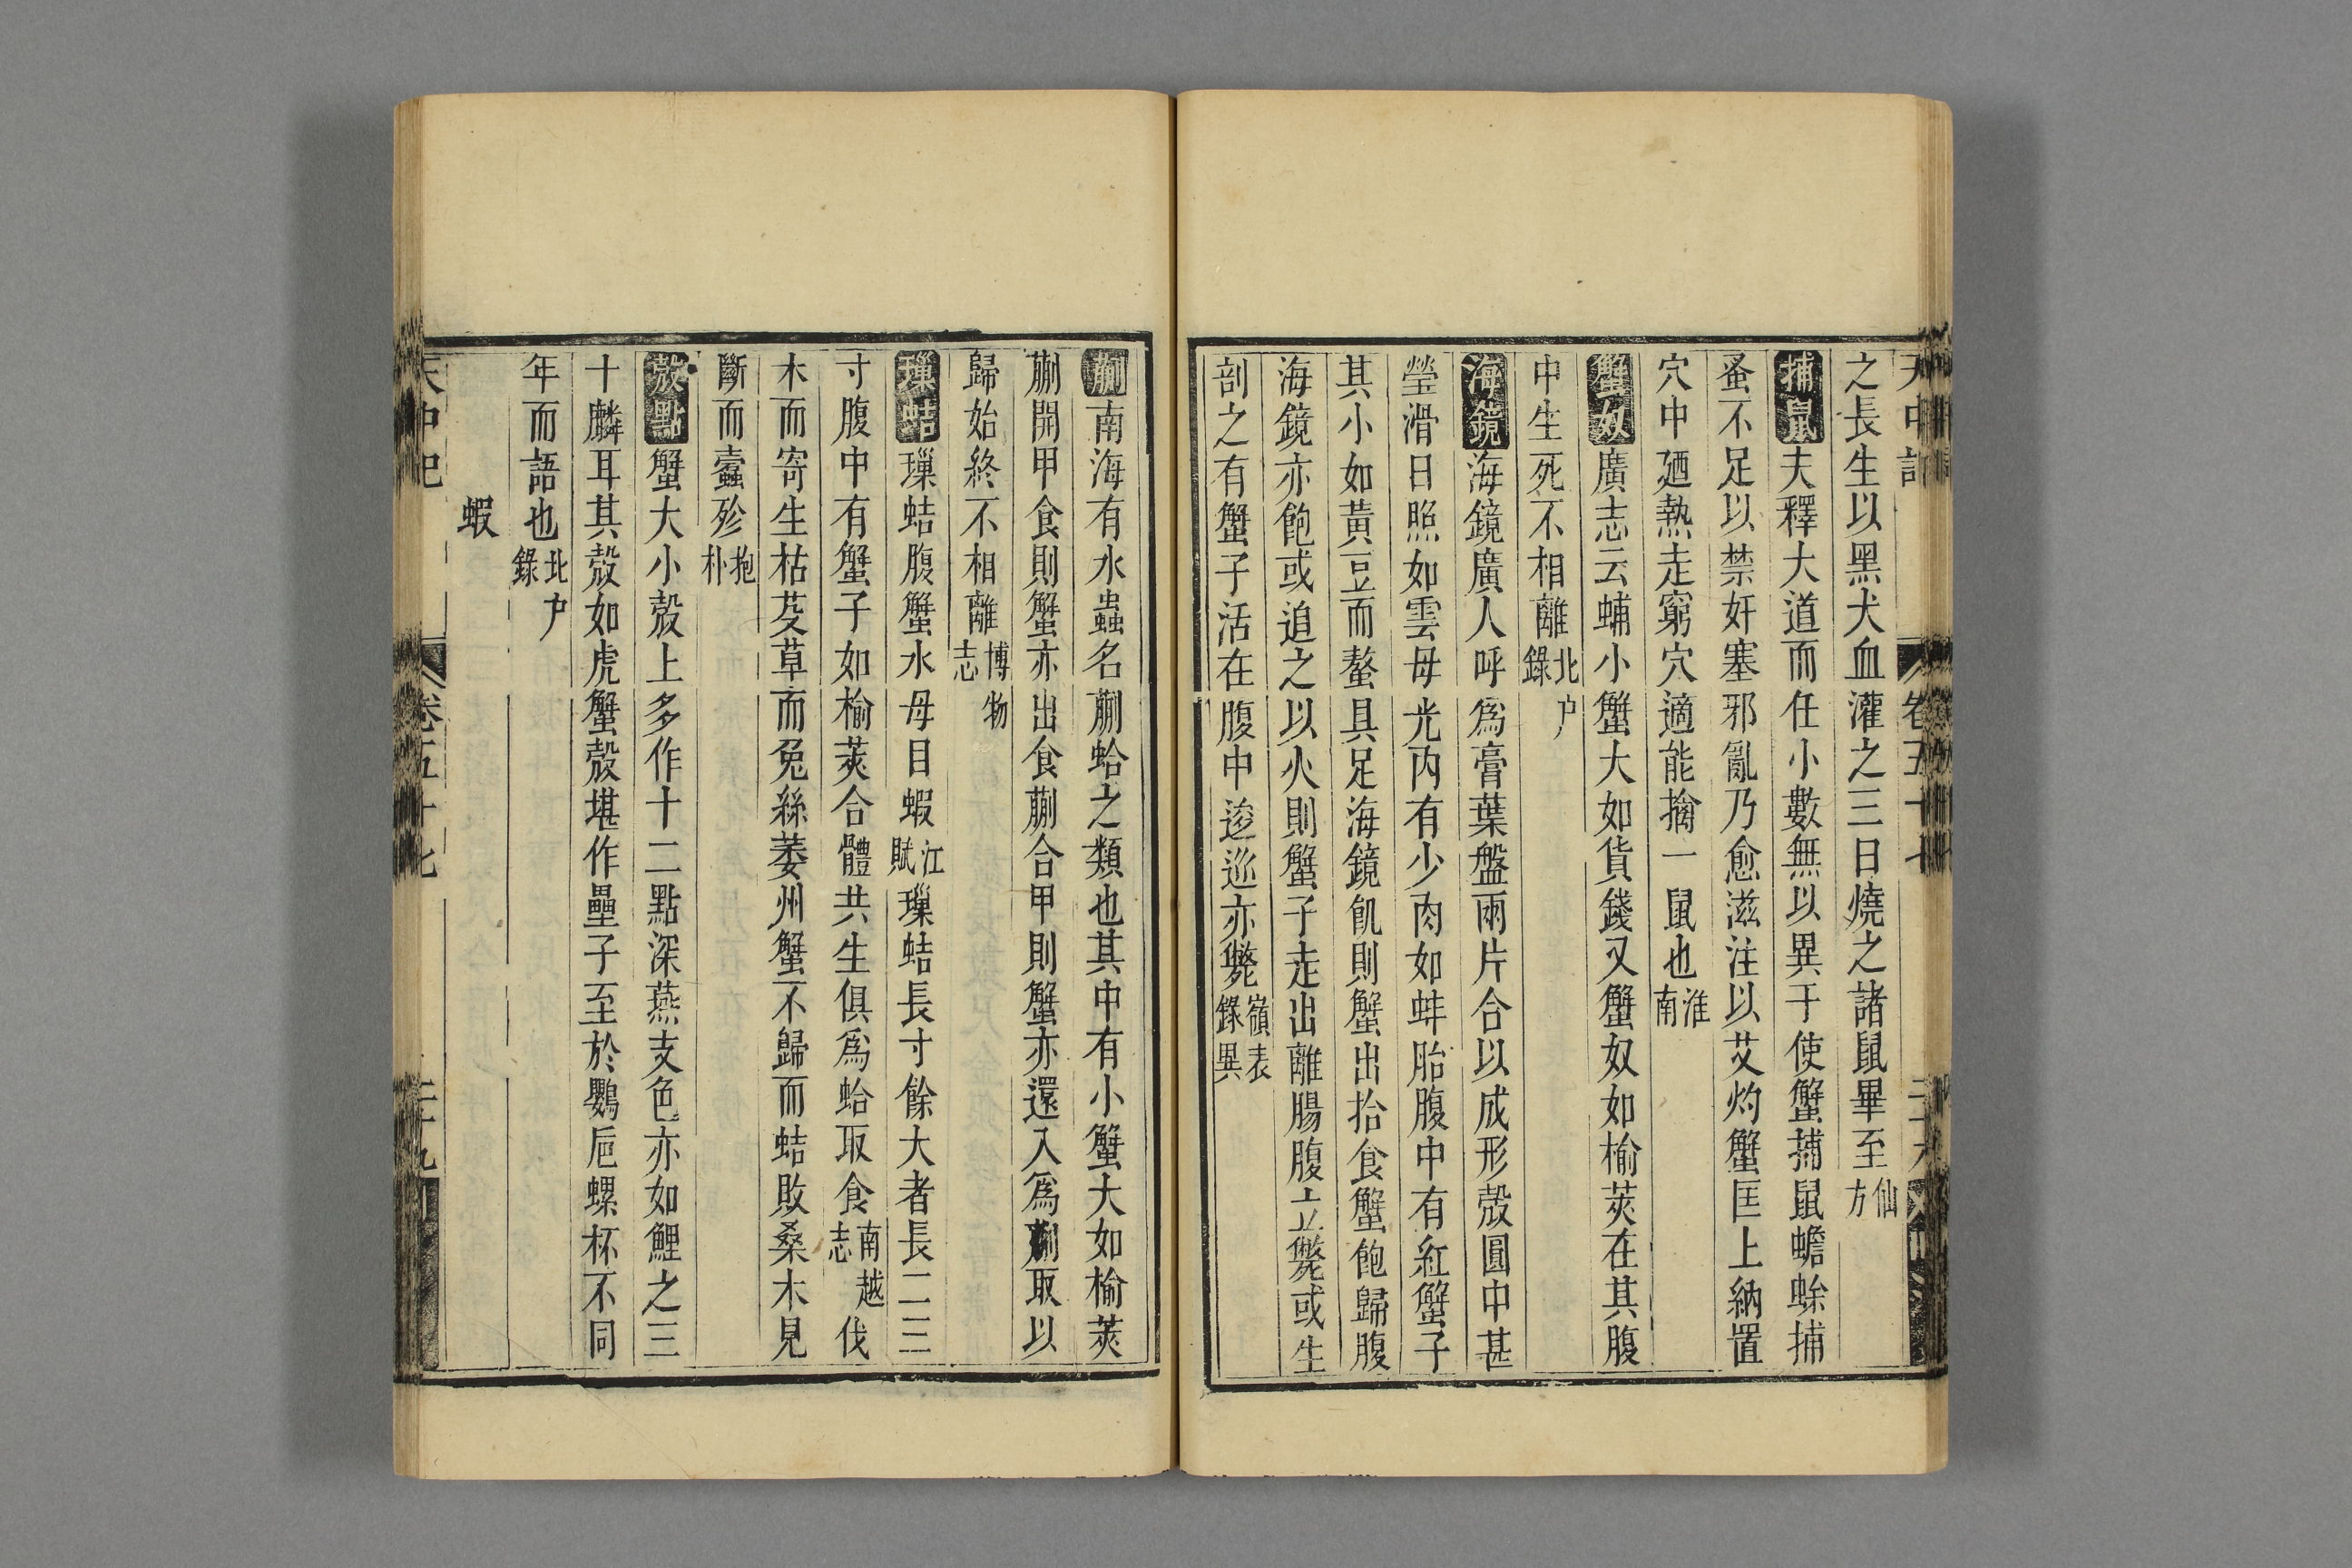 天中記 卷五十七
之長生以黑犬血灌之三日燒之諸鼠畢至仙方
捕鼠夫釋大道而任小數無以異于使蟹捕鼠蟾蜍捕
蚤不足以禁奸塞邪亂乃愈滋注以艾灼蟹匡上納置
穴中廼熱走窮穴適能擒一鼠也淮南
蟹奴廣志云蜅小蟹大如貨錢又蟹奴如榆莢在其腹
中生死不相離北户錄
海鏡海鏡廣人呼爲膏葉盤兩片合以成形殼圓中甚
瑩滑日照如雲母光内有少肉如蚌胎腹中有紅蟹子
其小如黃豆而螯具足海鏡飢則蟹出拾食蟹飽歸腹
海鏡亦飽或迫之以火則蟹子走出離腸腹立斃或生
剖之有蟹子活在腹中逡巡亦斃嶺表錄異
蒯南海有水蟲名蒯蛤之類也其中有小蟹大如榆莢
蒯開甲食則蟹亦出食蒯合甲則蟹亦還入爲蒯取以
歸始終不相離博物志
璅蛣璅蛣腹蟹水母目蝦江賦璅蛣長寸餘大者長二三
寸腹中有蟹子如榆莢合體共生俱爲蛤取食南越志伐
木而寄生枯芟草而兔絲萎州蟹不歸而蛣敗桑木見
斷而蠹殄抱朴
殼點蟹大小殼上多作十二點深燕支色亦如鯉之三
十麟耳其殼如虎蟹殼堪作壘子至於鸚巵螺杯不同
年而語也北户錄
蝦
天中記 卷五十七 二十九